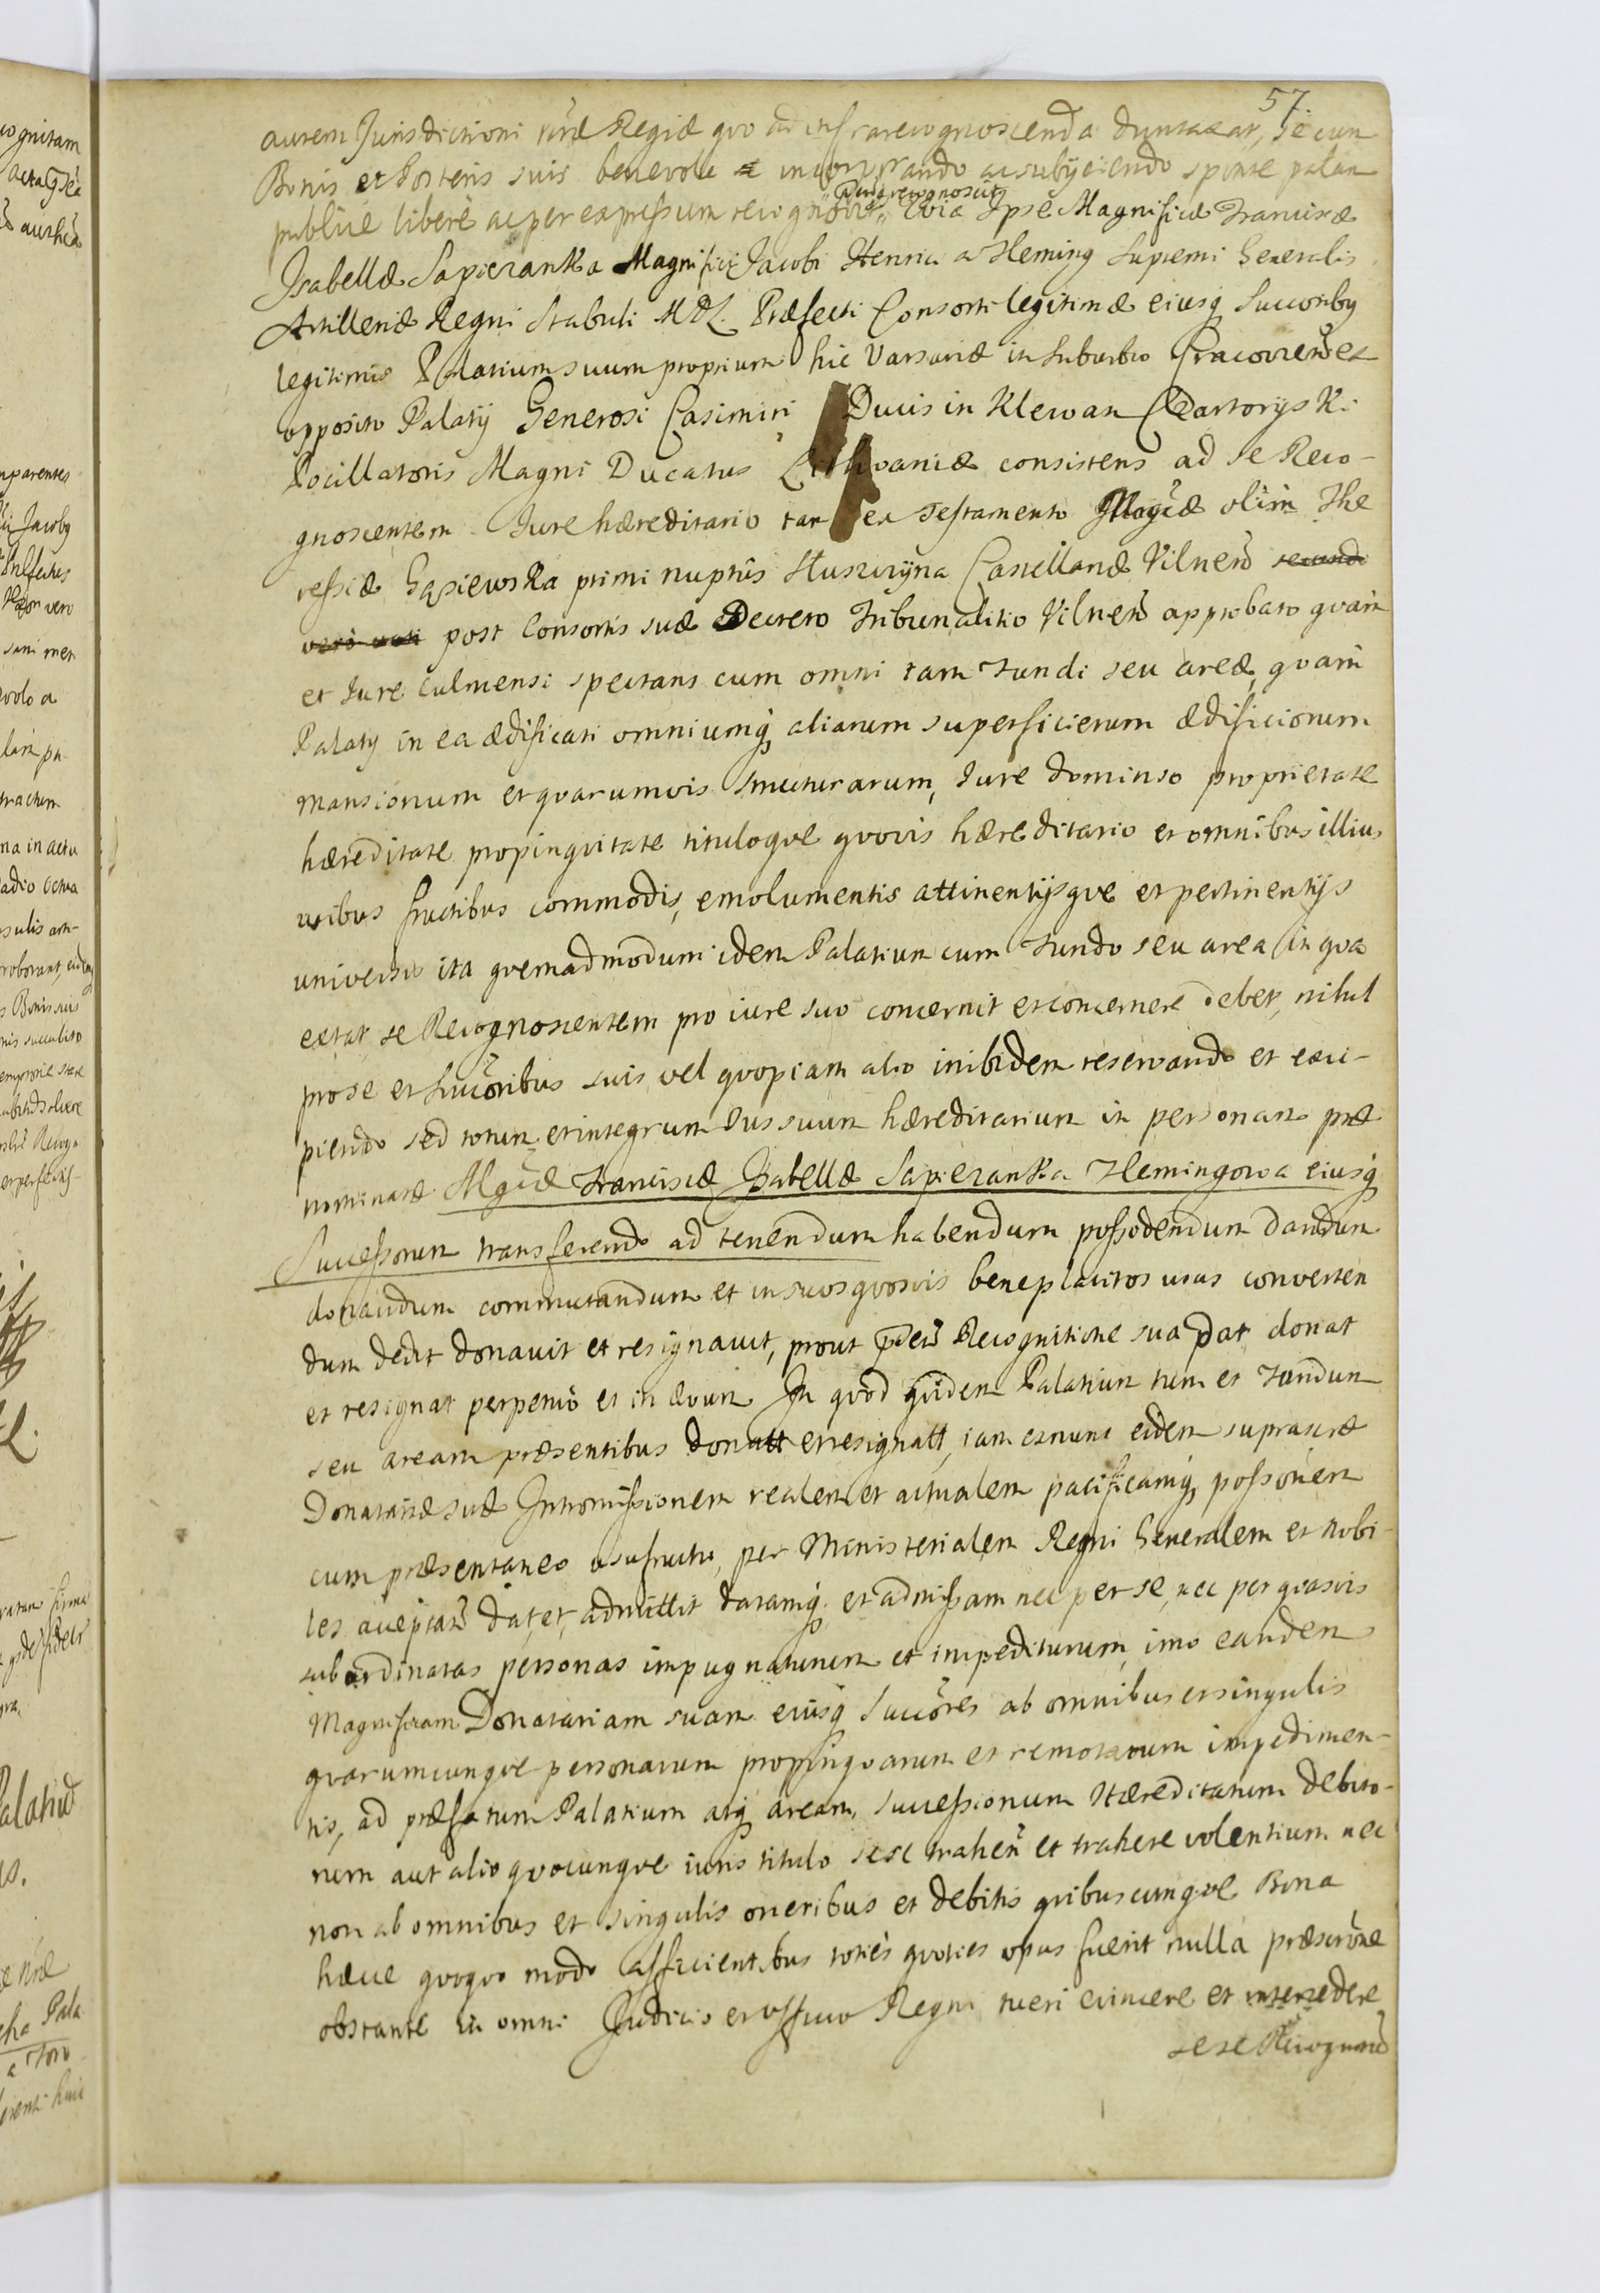 57.
autem Jurisdictioni vræ Regiæ quo ad infrarecognoscenda duntaxat, se cum
Bonis et Posteris suis benevole incorporando ac subijciendo sponte palam
publice libere ac per expressum recognovit, Quia recognoscit Quia Ipse Magnificæ Franciscæ
Isabellæ Sapiezanka Magnifici Jacobi Henrici a Fleming Supremi Generalis
Artilleriæ Regni Stabuli MDL. Præfecti Consorti legitimæ eiusq Succoribq
legitimis Palatium suum proprium hic Varsaviæ in Suburbio Cracovien ex
opposito Palatij Generosi Casimiri Ducis in Klewan Czartoryski
Pocillatoris Magni Ducatus Lithvaniæ consistens ad se Reco-
gnoscentem Jure hæreditario tam ex Testamento Mgcæ olim The
ressiæ Gąsiewska primi nuptus Huszczyna Castellanæ Vilnen secundi
vero voti post Consortis suæ Decreto Tribunalitio Vilnen approbato quam
et Jure culmensi spectans cum omni tam Fundi seu areæ, quam
Palatij in ea ædificati omniumq aliarum superficierum ædificiorum
mansionum et quarumvis structurarum, Jure dominio proprietate
hæreditate propinquitate tituloque quovis hæreditario et omnibus illius
usibus fructibus commodis, emolumentis attinentijsque et pertinentijs
universis ita quemadmodum idem Palatium cum Fundo seu area in qua
extat se Recognoscentem pro iure suo concernit et concernere debet, nihil
pro se et Succoribus suis vel quopiam alio inibidem reservando et exci-
piendo sed totum et integrum Jus suum hæreditarium in personam præ
nominatæ Mgcæ Franciscæ Isabellæ Sapiezanka Flemingowa eiusq
Successorum transferendo ad tenendum habendum possodendum dandum
donandum commutandum et in suos quosvis beneplacitos usus converten
dum dedit donavit et resignavit, prout pnti Recognitione sua dat donat
et resignat perpetuo et in ævum In quod quidem Palatium tum et Fundum
seu aream præsentibus donatt et resignatt, iam ex nunc eidem suprascræ
Donatariæ suæ Intromissionem realem et actualem pacificamq possonem
cum præsentaneo usufructu, per Ministerialem Regni Generalem et Nobi-
les acceptan dat, et, admittit datamq et admissam nec per se, nec per quasvis
subordinatas personas impugnaturum et impediturum, imo eandem
Magnificam Donatariam suam eiusq Succores ab omnibus et singulis
quarumcunque personarum propinquarum et remotarum impedimen-
tis, ad præfatum Palatium atq aream, successionum Hæreditatum debito-
rum aut alio quocunque iuris titulo sese trahen et trahere volentium nec
non ab omnibus et singulis oneribus et debitis quibuscunque Bona
hæcce quoquo modo afficientibus toties quoties opus fuerit nulla præscrone
obstante in omni Judicio et officio Regni tueri evincere et intercedere
sese Recognoscen